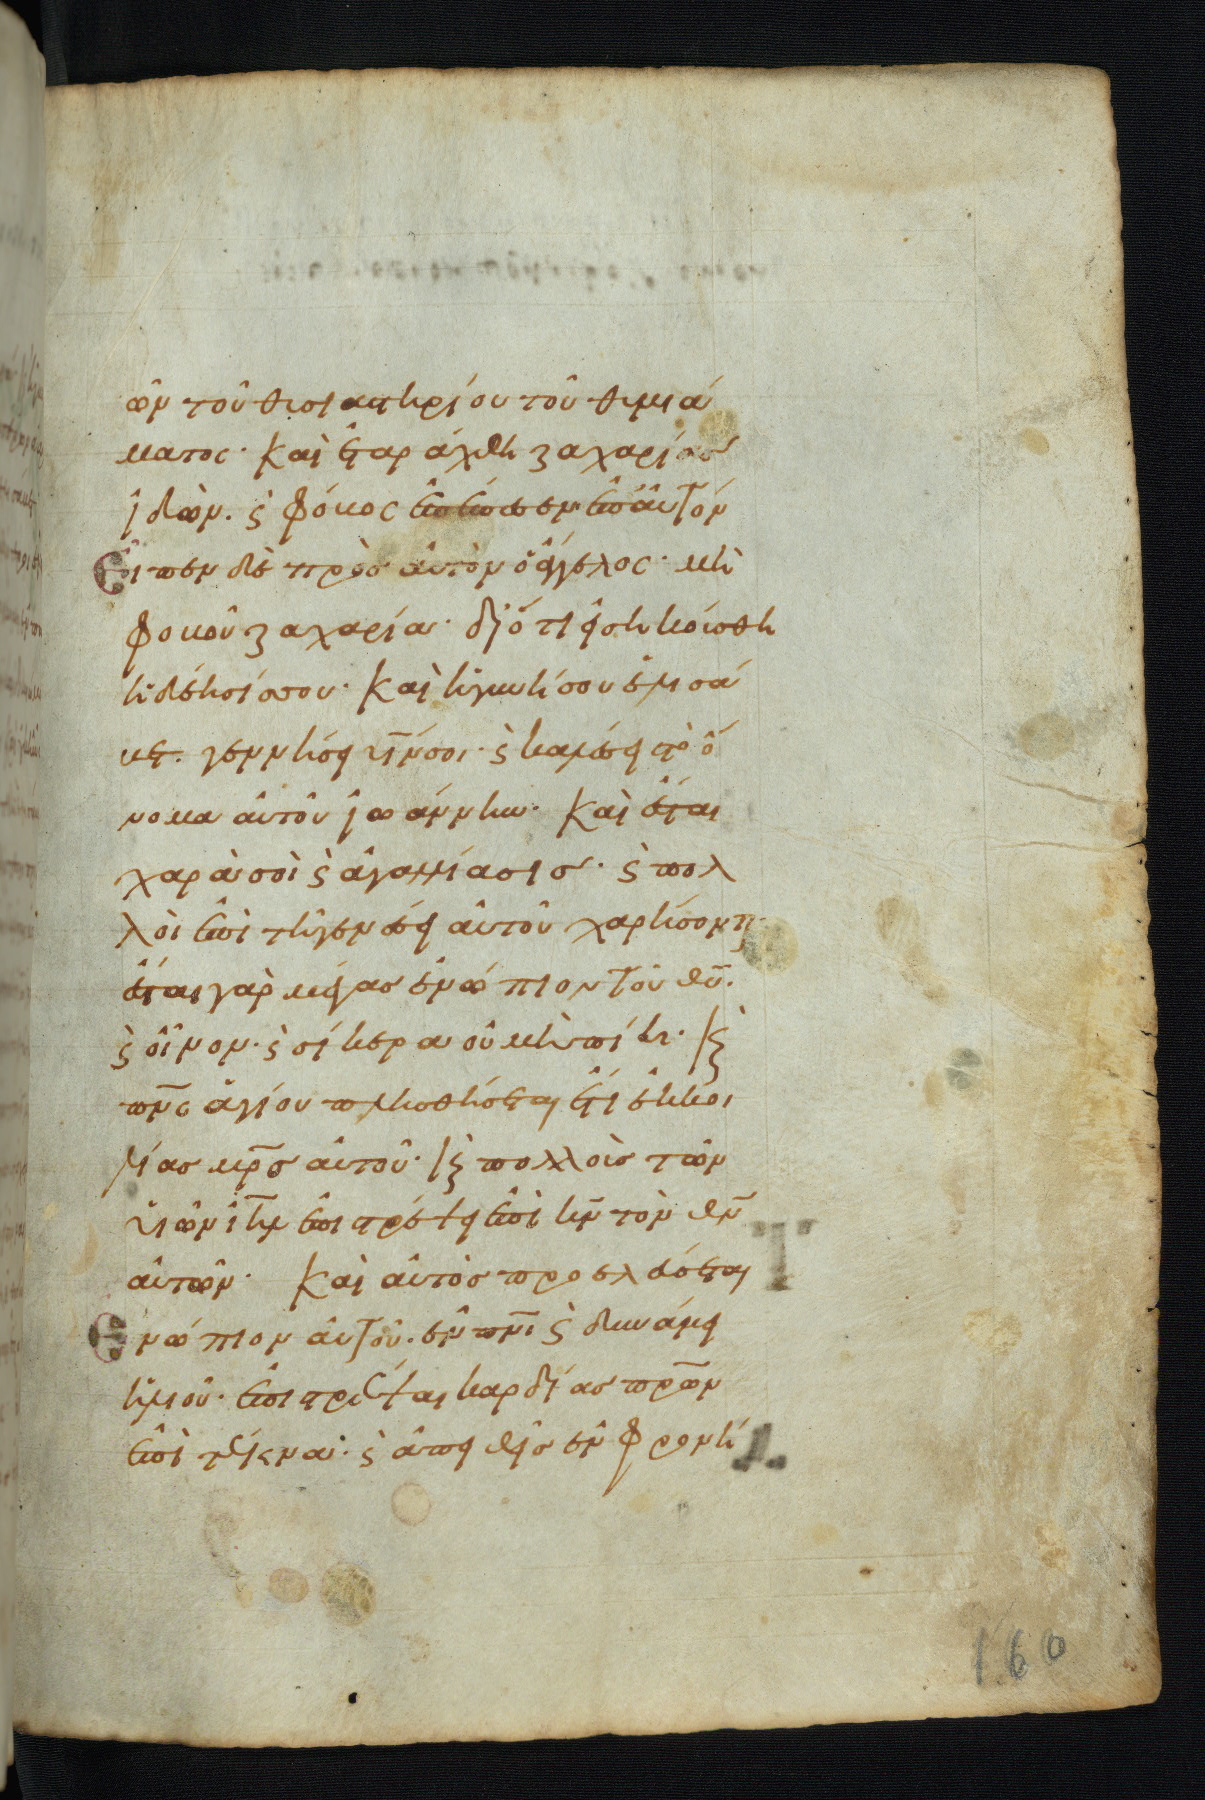 ῶν τοῦ θυσιαστηρίου τοῦ θυμιά
ματος· Καὶ ἐταράχθη ζαχαρίας
ἰδὼν. ϛ̀ φόβος ἐπέπεσεν ἐπ' ἀυτόν
Εἶπεν δὲ πρὸσ ἀυτὸν ὁ ἄγγελος· μὴ
φοβοῦ ζαχαρία· διότι εἰσηκούσθη
ἡ δέησίσ σου· Καὶ ἡ γυνή σου ἐλισά
βετ. γεννήσει υἱόν σοι· ϛ̀ καλέσεις τὸ ὄ
νομα ἀυτοῦ ἰωάννην· Καὶ ἔσται
χαρὰ σοὶ ϛ̀ ἀγαλλίασισ· ϛ̀ πολ
λοὶ ἐπὶ τῆ γεννέσει ἀυτοῦ χαρήσονται·
ἔσται γὰρ μέγας ἐνώπιον τοῦ θῡ.
ϛ̀ οἶνον· ϛ̀ σίκερα οὐ μὴ πίη· κϛ̀
πν̅ς ἁγίου πλησθήσεται ἔτι ἐκ κοι
λίασ μρ̅σ ἀυτοῦ· κϛ̀ πολλοὺσ τῶν
υἱῶν ιη̅λ ἐπιστρέψει ἐπὶ κ̅ν τὸν θ̅ν
ἀυτῶν· Καὶ ἀυτὸσ προελεύσεται
Ενώπιον ἀυτοῦ. ἐν πν̅ι ϛ̀ δυνάμει
ἡλιοῦ· ἐπιστρέψαι καρδίασ πρ̅ων
ἐπὶ τέκνα· ϛ̀ ἀπειθεῖσ ἐν φρονή
160